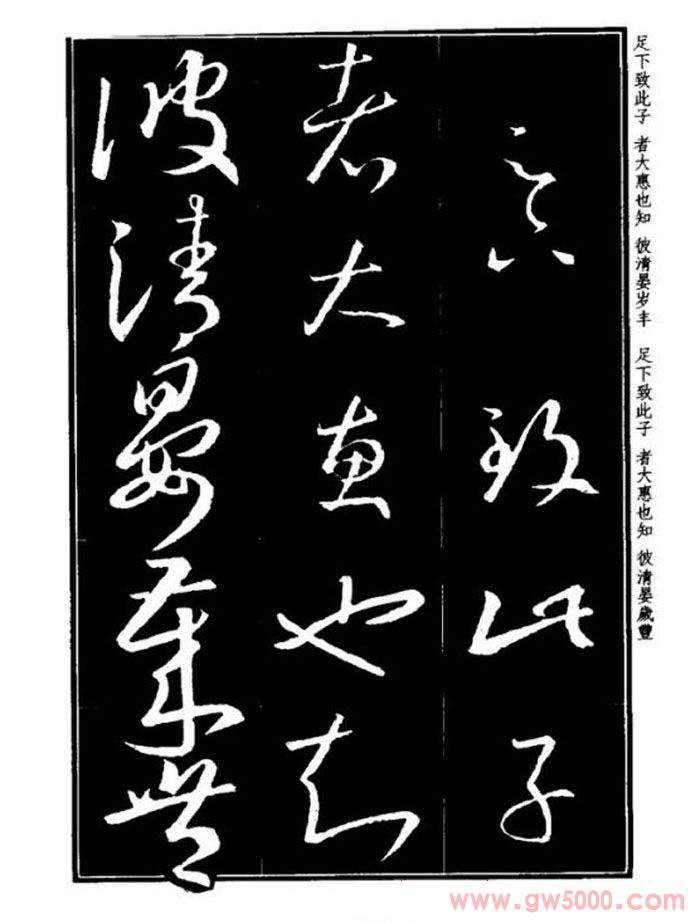 足下致此子
者大惠也知
彼清晏歲豐
足下致此子 者大惠也知 彼清晏岁丰 足下致此子 者大惠也知 彼清晏歲豐
www.gw5000.com